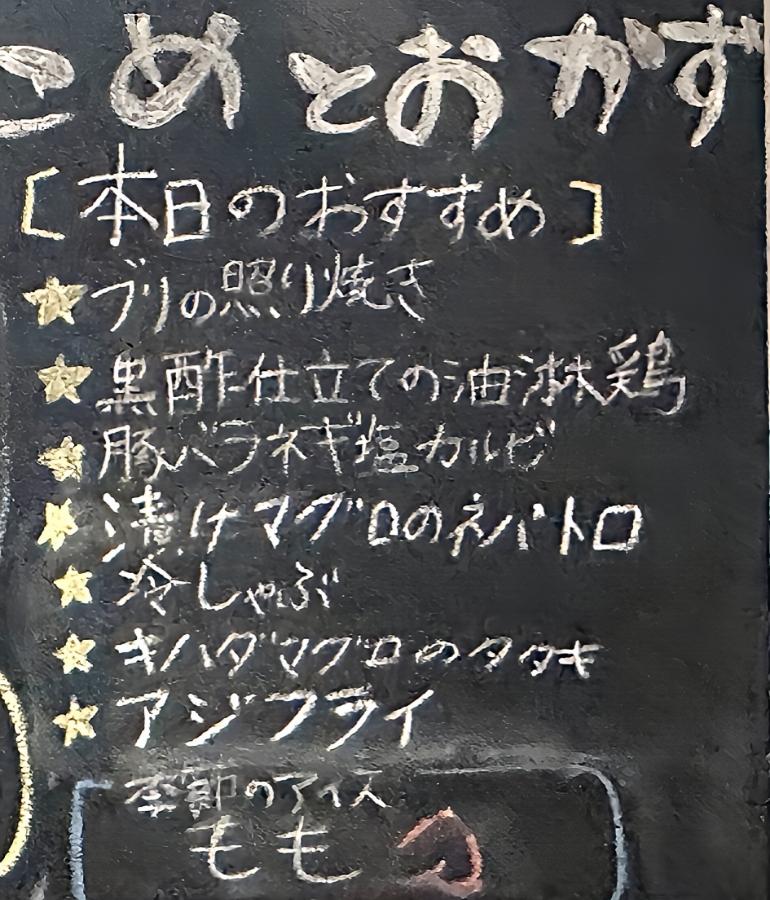 こめとおかず
[本日のおすすめ]
ブリの照り焼き
黒酢仕立ての油淋鶏
豚バラネギ塩カルビ
漬けマグロのネバトロ
冷しゃぶ
キハダマグロのタタキ
アジフライ
季節のアイス
もも